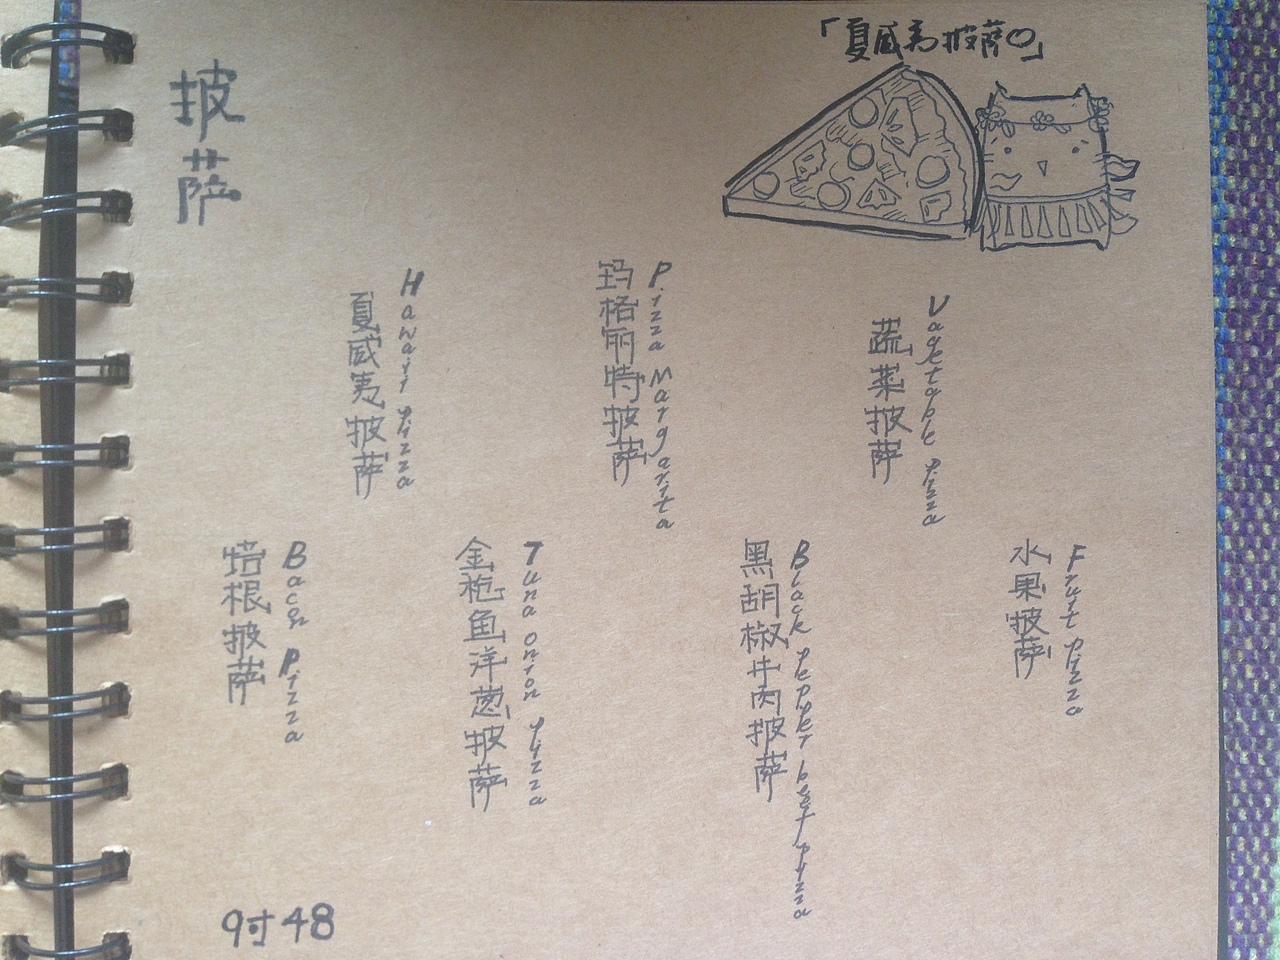 披萨
「夏威夷披萨♡」
夏威夷披萨
Hawaii pizza
玛格丽特披萨
Pizza Margarita
蔬菜披萨
Vagetable pizza
培根披萨
Bacon Pizza
金枪鱼洋葱披萨
Tuna onion pizza
黑胡椒牛肉披萨
Black pepper beef pizza
水果披萨
Fruit pizza
9寸48